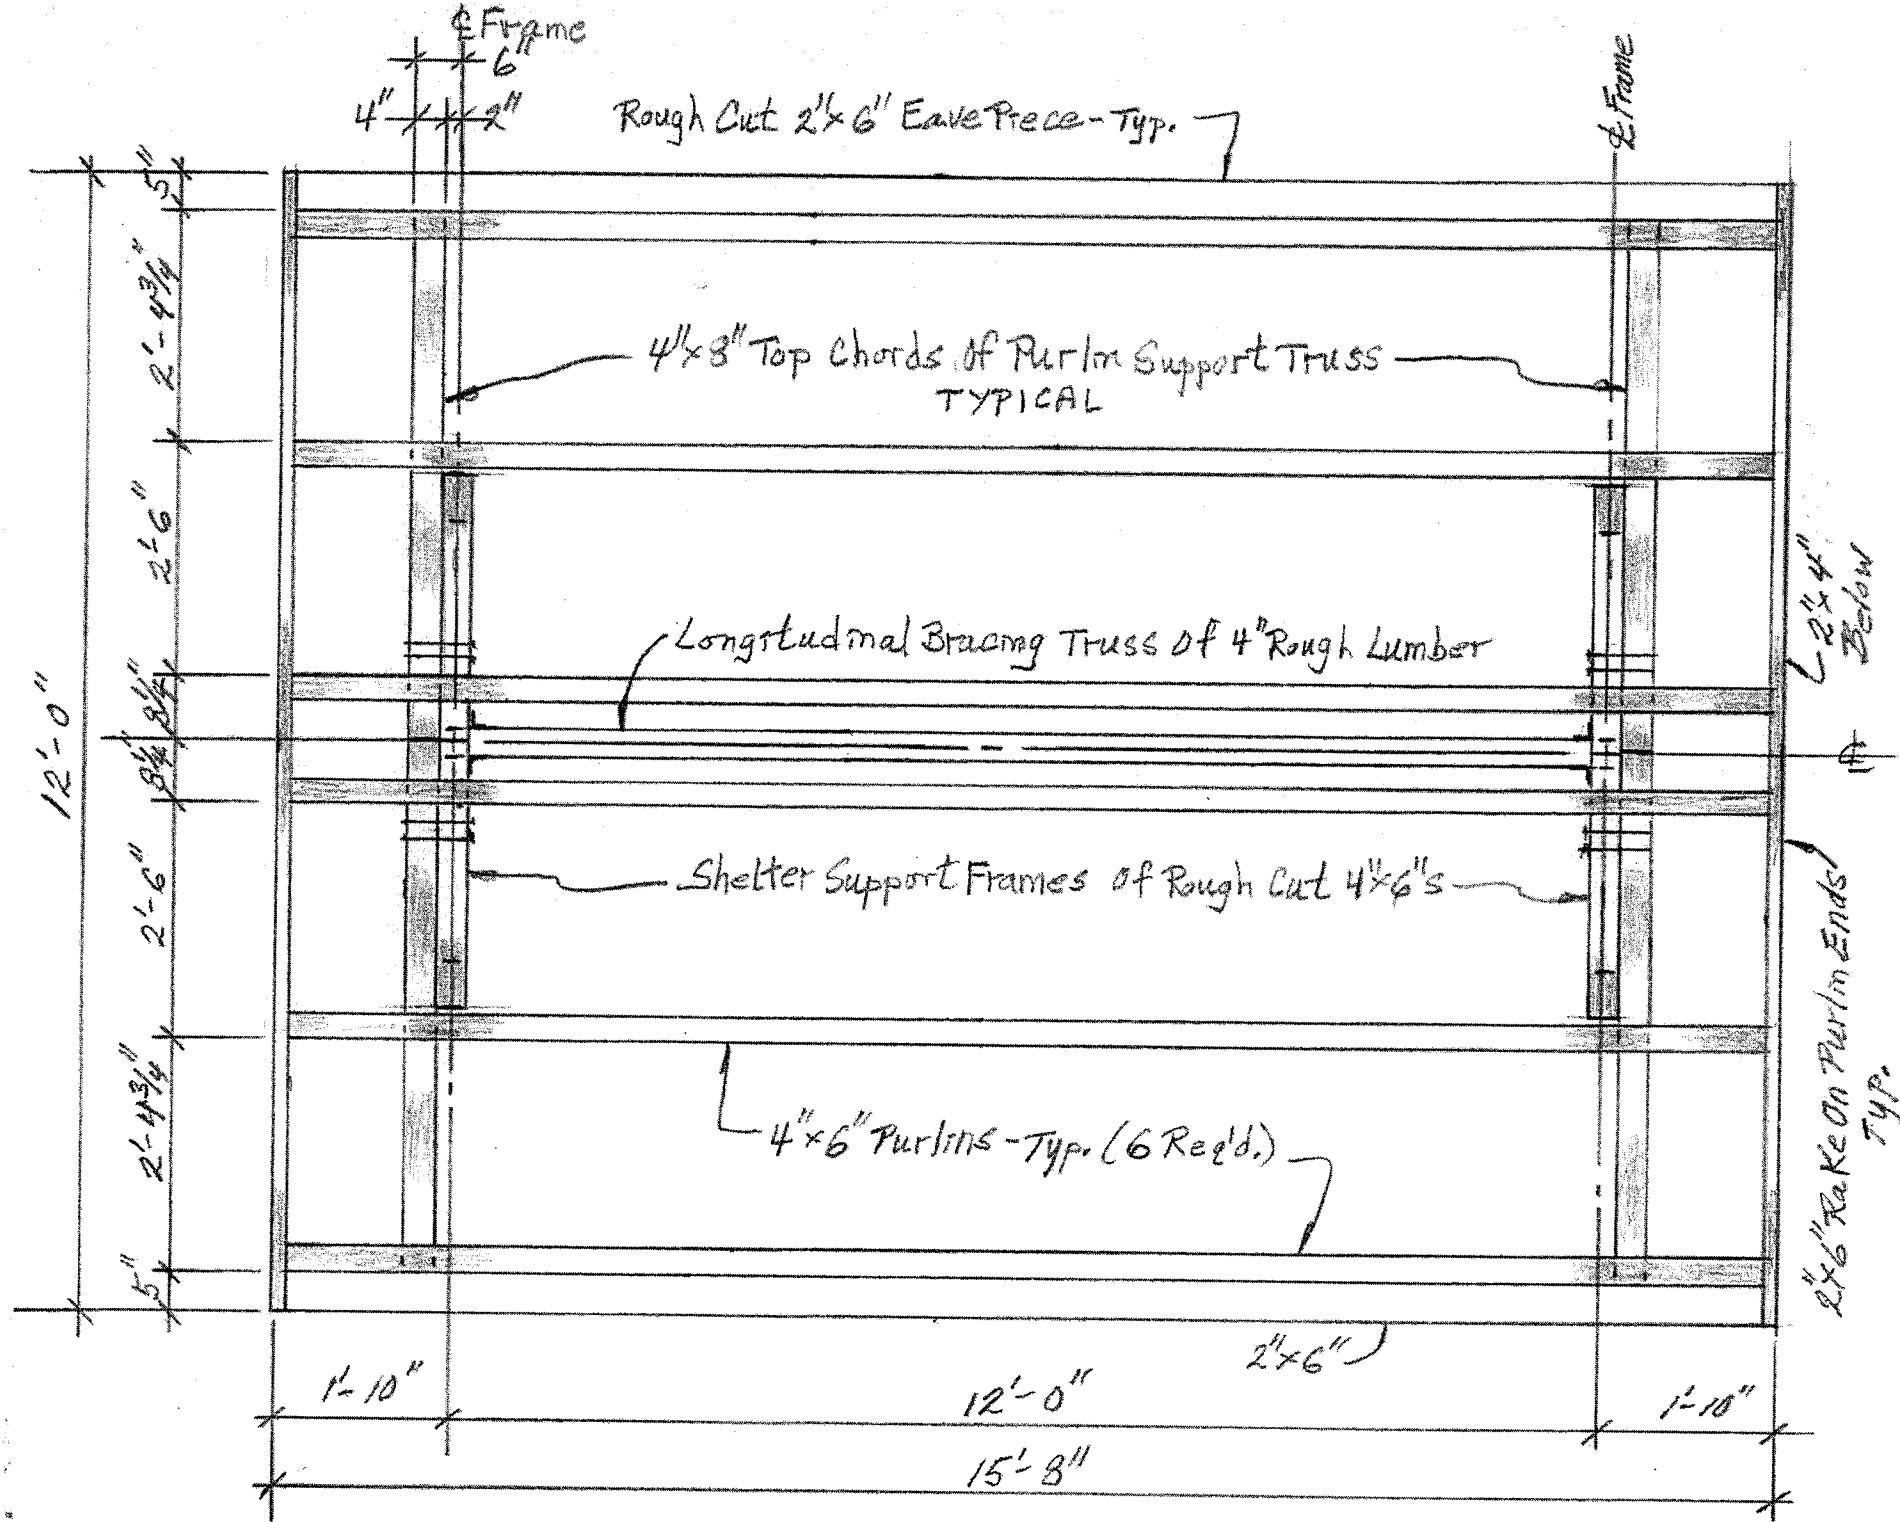 ℄ Frame
6"
4"
2"
Rough Cut 2"x6" Eave Piece-Typ.
℄ Frame
5"
2'-4 3/4"
4"x8" Top Chords Of Purlin Support Truss
TYPICAL
2'-6"
2"x4"
Below
Longitudinal Bracing Truss Of 4" Rough Lumber
8 1/4"
8 1/4"
12'-0"
℄
2'-6"
Shelter Support Frames Of Rough Cut 4"x6"s
2"x6" Rake On Purlin Ends
Typ.
2'-4 3/4"
4"x6" Purlins-Typ. (6 Req'd.)
5"
2"x6"
1'-10"
12'-0"
1'-10"
15'-8"